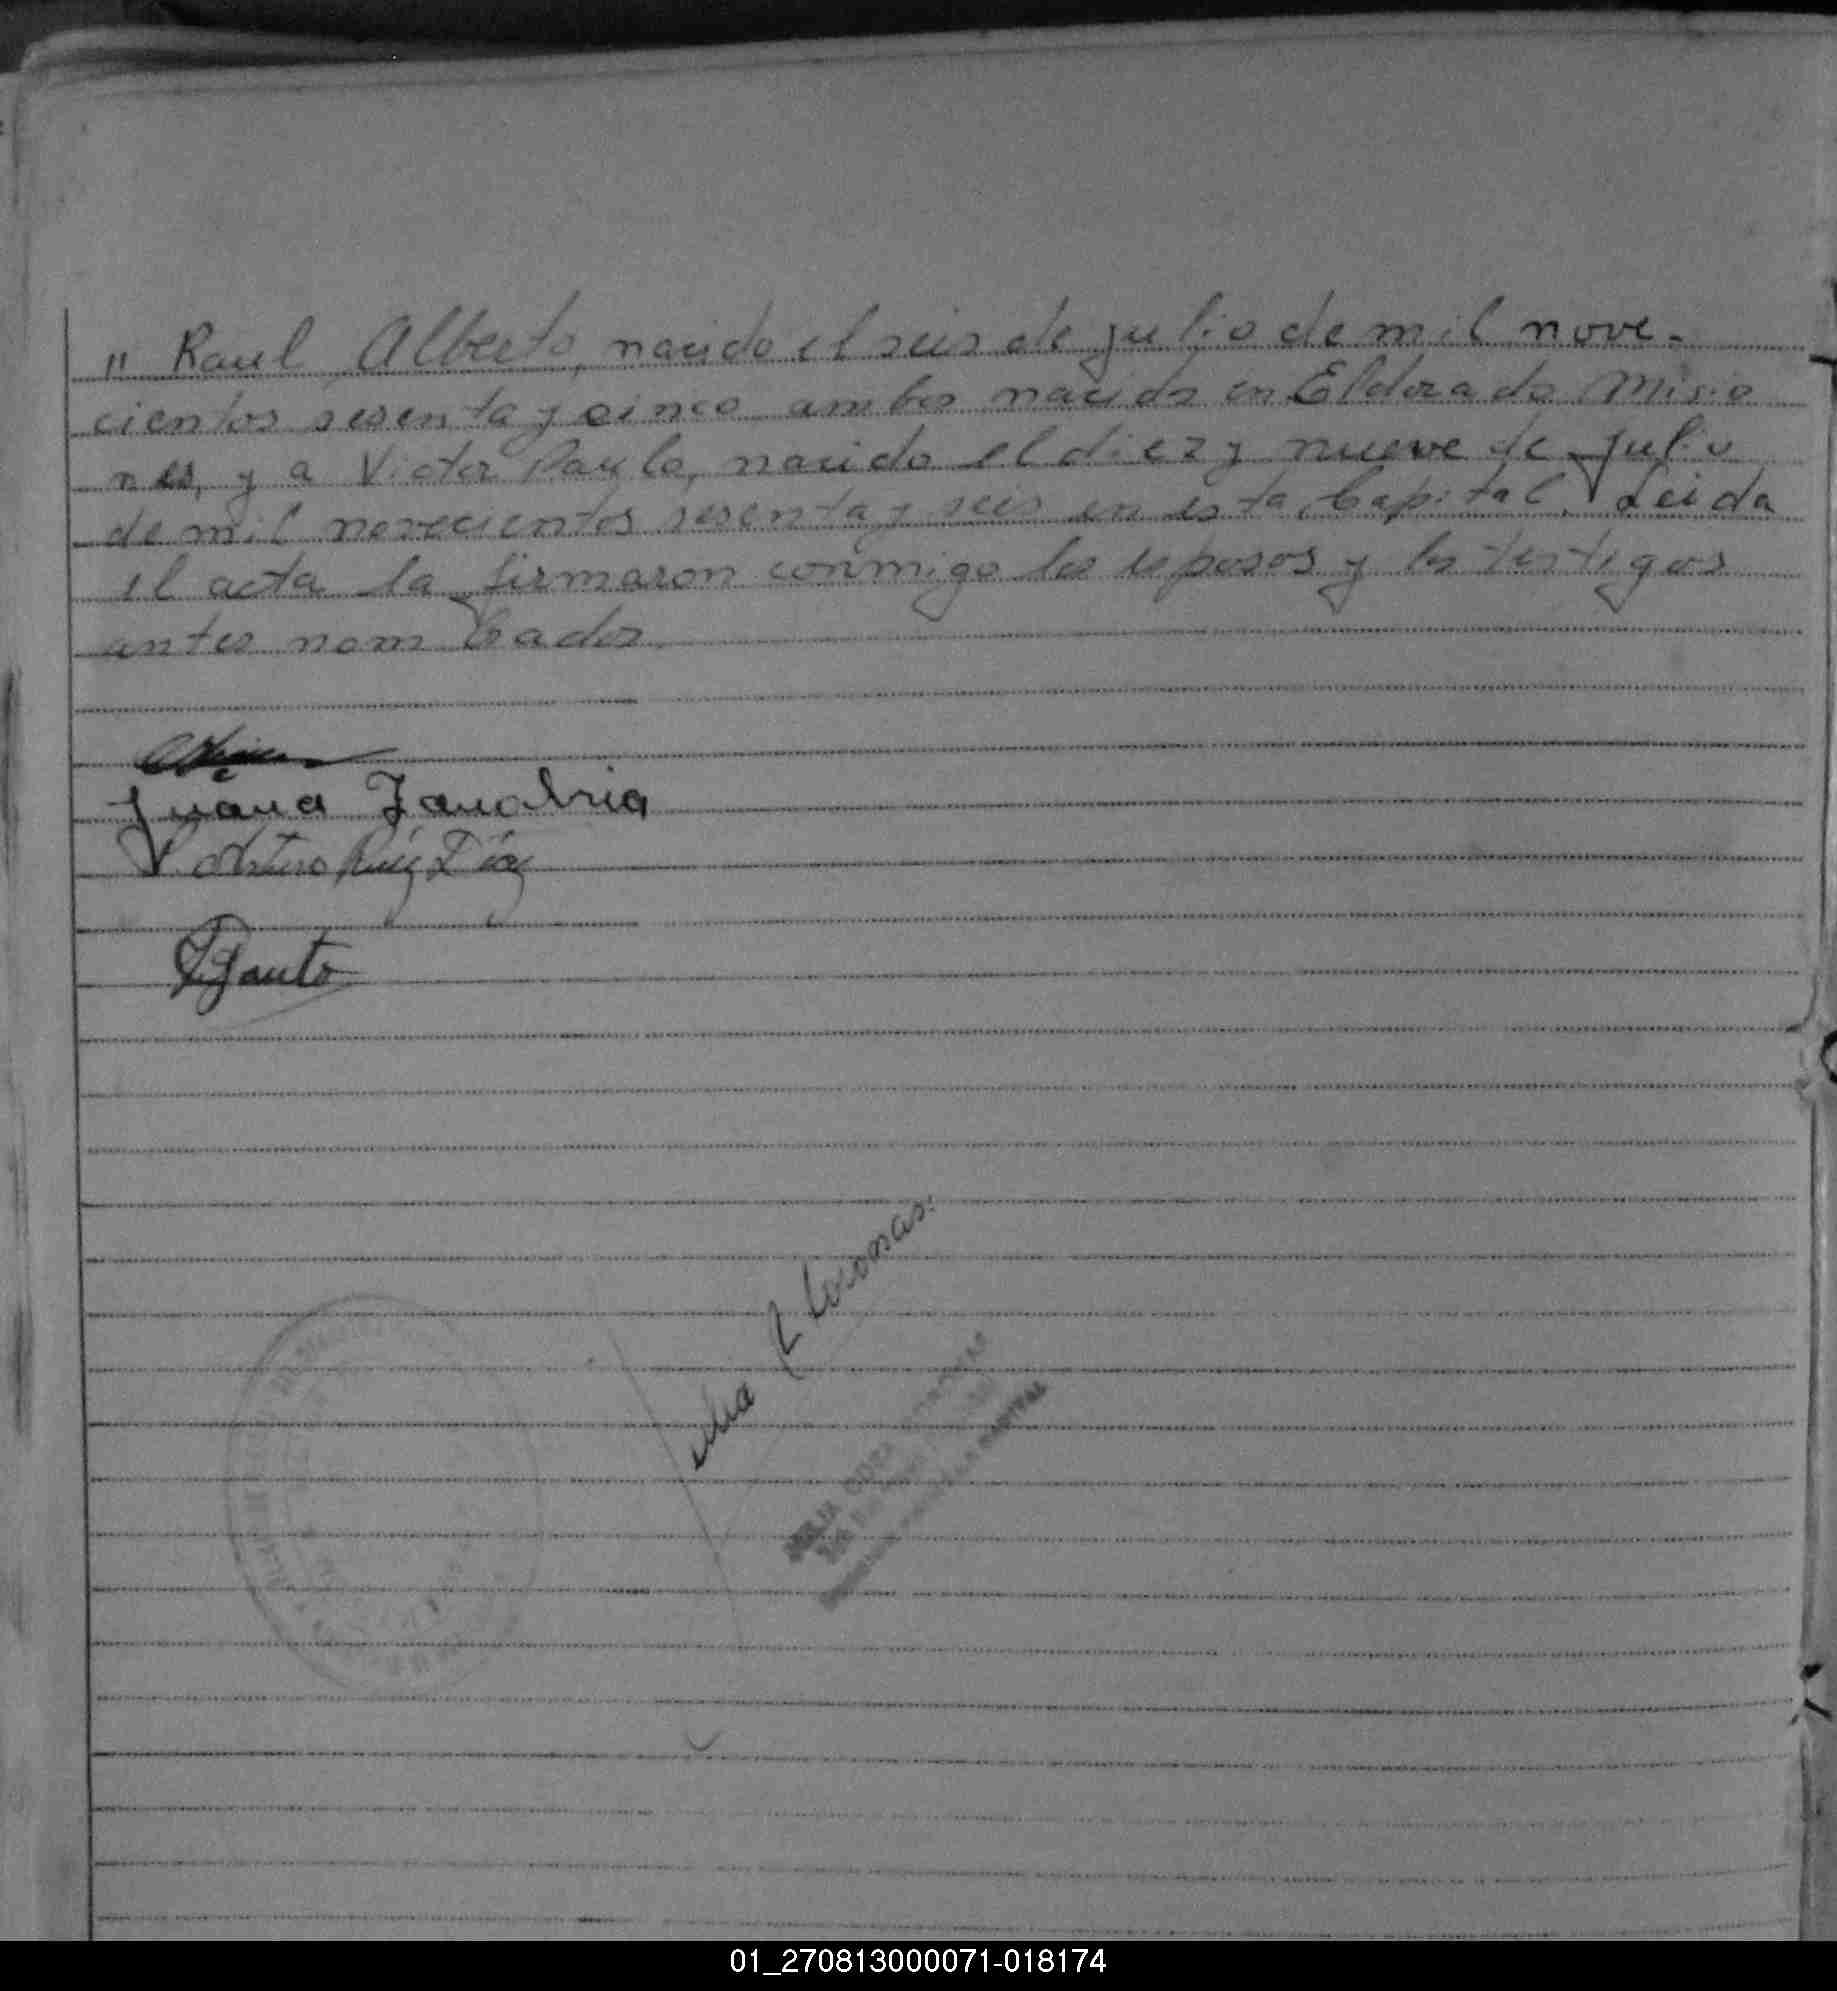 " Raul Alberto, nacido el seis de julio de mil nove-
cientos sesenta y cinco ambos nacidos en Eldorado Misio
nes, y a Victor Paulo, nacido el diez y nueve de julio
de mil novecientos sesenta y seis en esta Capital. Leida
el acta la firmaron conmigo los esposos y los testigos
antes nombrados.
Juana Zanabria
V. Arturo Ruíz Díaz
Gauto
LA CAPITAL
01_270813000071-018174